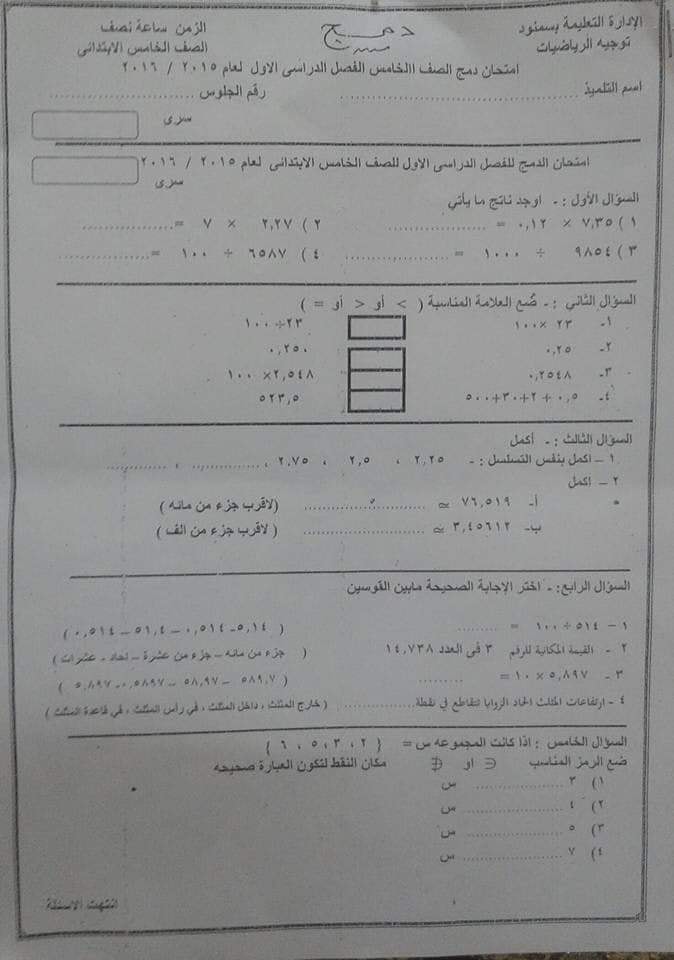 الإدارة التعليمة بسمنود دمج الزمن ساعة نصف
توجيه الرياضيات الصف الخامس الابتدائى
امتحان دمج الصف االخامس الفصل الدراسى الاول لعام ٢٠١٥ / ٢٠١٦
اسم التلميذ .................................... رقم الجلوس ......................
سرى
امتحان الدمج للفصل الدراسى الاول للصف الخامس الابتدائى لعام ٢٠١٥ / ٢٠١٦
سرى
السؤال الأول : - اوجد ناتج ما يأتي
١ ) ٧,٣٥ × ٠,١٢ = .................... ٢ ) ٢,٢٧ × ٧ = ....................
٣ ) ٩٨٥٤ ÷ ١٠٠٠ = .................... ٤ ) ٦٥٨٧ ÷ ١٠٠ = ....................
السؤال الثاني : - ضع العلامة المناسبة ( > أو < أو = )
١- ٢٣ ×١٠٠ ٢٣÷ ١٠٠
٢- ٠,٢٥ ٠,٢٥٠
٣- ٠,٢٥٤٨ ٢,٥٤٨× ١٠٠
٤- ٠,٥ + ٢+ ٣٠+ ٥٠٠ ٥٢٣,٥
السؤال الثالث : - أكمل
١ – اكمل بنفس التسلسل : - ٢,٢٥ ، ٢,٥ ، ٢,٧٥ ، .............. ، ..............
٢ – اكمل
أ- ٧٦,٥١٩ ≃ .......................... (لاقرب جزء من مائه )
ب- ٣,٤٥٦١٢ ≃ .......................... ( لاقرب جزء من الف )
السؤال الرابع: - اختر الإجابة الصحيحة مابين القوسين
١ – ٥١٤ ÷ ١٠٠ = .......... ( ٥,١٤ – ٠,٥١٤ – ٥١,٤ – ٠,٥١٤ )
٢ - القيمة المكانية للرقم ٣ فى العدد ١٤,٧٣٨ ( جزء من مائه – جزء من عشرة – احاد - عشرات )
٣ - ٥,٨٩٧ × ١٠ = .......... ( ٥٨٩,٧ – ٥٨,٩٧ – ٠,٥٨٩٧ – ٥,٨٩٧ )
٤ - ارتفاعات المثلث الحاد الزوايا تتقاطع في نقطة.............. ( خارج المثلث ، داخل المثلث ، في رأس المثلث ، في قاعدة المثلث )
السؤال الخامس : اذا كانت المجموعه س = { ٢ ، ٣ ، ٥ ، ٦ }
ضع الرمز المناسب ∈ او ∉ مكان النقط لتكون العبارة صحيحه
١) ٣ .................... س
٢) ٤ .................... س
٣) ٥ .................... س
٤) ٧ .................... س
انتهت الاسئلة